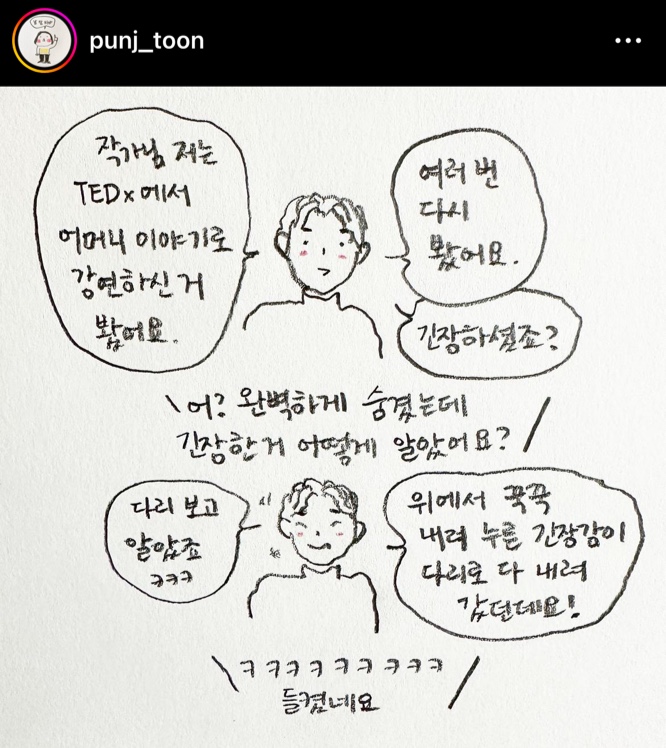 punj_toon
작가님 저는
TEDx에서
어머니 이야기로
강연하신 거
봤어요.
여러 번
다시
봤어요.
긴장하셨죠?
\ 어? 완벽하게 숨겼는데
긴장한 거 어떻게 알았어요? /
다리 보고
알았죠
ㅋㅋㅋ
위에서 꾹꾹
내려 누른 긴장감이
다리로 다 내려
갔던데요!
\ ㅋㅋㅋㅋㅋㅋㅋㅋㅋ /
들켰네요